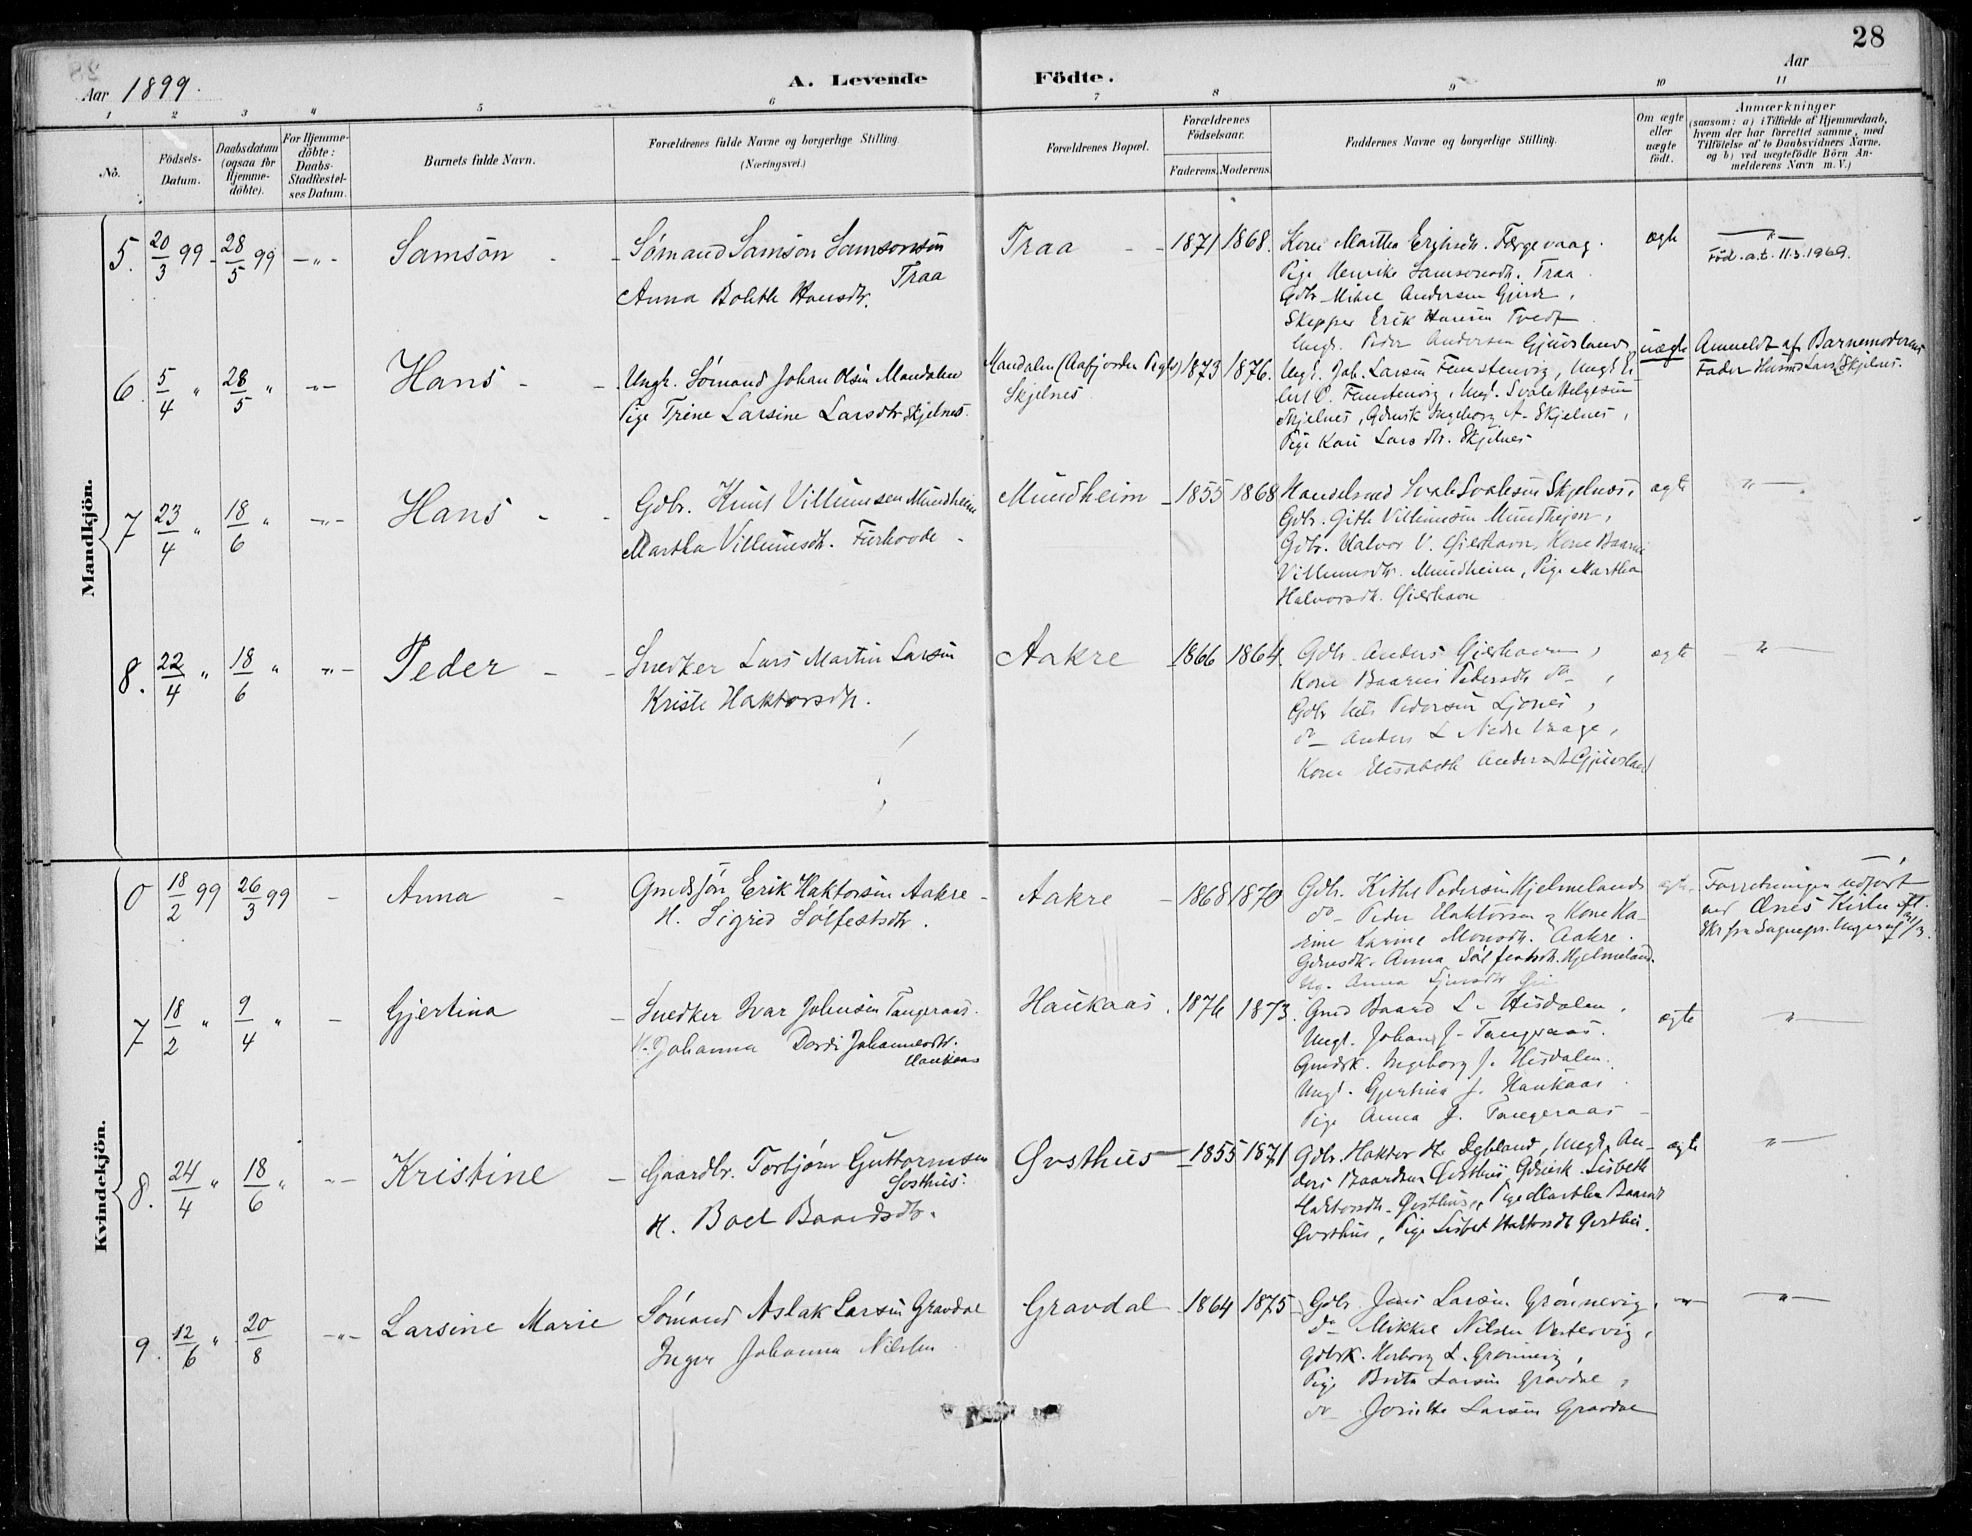 28
Aar 1899.
A. Levende Födte.
Aar
1 2 3 4 5 6 7 8 9 10 11
No.
Födsels-Datum.
Daabsdatum (ogsaa for Hjemme-döbte).
For Hjemme-döbte: Daabs-Stadfæstel-ses Datum.
Barnets fulde Navn.
Forældrenes fulde Navne og borgerlige Stilling (Næringsvei.)
Forældrenes Bopæl.
Forældrenes Födselsaar.
Faderens. Moderens.
Faddernes Navne og borgerlige Stilling.
Om ægte eller uægte födt.
Anmærkninger (saasom: a) i Tilfælde af Hjemmedaab, hvem der har forrettet samme, med Tilföielse af to Daabsvidners Navne, og b) ved uægtefödte Börn Anmelderens Navn m. V.)
Mandkjön.
5. 20/3 99 28/5 99 -„-
Samson
Sømand Samson Samsonsen
Traa
Anna Bolette Hansdtr.
Traa
1871 1868.
Kone Martha Eriksdtr. Færgevaag.
Pige Henrike Samsonsdtr. Traa
Gdbr. Mikal Andersen Gjerde,
Skipper Erik Hansen Tvedt
Ungk. Peder Andersen Gjuvsland
ægte
-„-
Föd.a.t. 11.3.1969.
6. 5/4 „ 28/5 „ -„-
Hans
Ungk. Sømand Johan Olsen Mandalen
Pige Trine Larsine Larsdtr. Skjelnes.
Mandalen (Aafjorden Prgld)
Skjelnes.
1873 1876.
Ungk. Joh. Larsen Femstenvig, Ungk. Ei-
Skjelnes, Ingeborg A. Skjelnes,
Pige Kari Larsdtr. Skjelnes
uægte
Anmeldt af Barnemoderens
Fader Husmd Lars Skjelnes.
7 23/4 „ 18/6 „ -„-
Hans
Gdbr. Knut Villumsen Mundheim
Martha Villumsdtr. Furhovde
Mundheim
1855 1868
Handelsmd Svale Svalesen Skjelnes,
Gdbr. Gitle Villumsen Mundheim,
Gdbr. Halvor V. Gierhavn, Kone Baarni
Villumsdtr. Mundheim, Pige Martha
Halvorsdtr. Gierhavn
ægte
„-
8. 22/4 „ 18/6 „ -„-
Peder
Snedker Lars Martin Larsen
Kristi Haktorsdtr.
Aakre
1866 1864.
Gdbr. Anders Gierhavn,
Kone Baarni Pedersdtr. do,
Gdbr. Nils Pedersen Ljones,
do Anders L Nedre Vaage,
Kone Elisabeth Andersdtr Gjuvsland
ægte
„-
Kvindekjön.
0 18/2 99 26/3 99 -
Anna
Gmdsjøn Erik Haktorsen Aakre
H. Sigrid Sølfestsdtr.
Aakre
1868 1870
Gdbr. Pedersen Hjelmeland
do Peder Haktorsen og Kone Ka-
Karine Monsdtr. Aakre.
Gdmsdk. Anna Sølfestsdtr. Hjelmeland.
ægte
Forretningen udført
ved Ænes Kirke
7 18/2 „ 9/4 „ -
Gjertina
Snedker Ivar Johnsen Tangeraas.
H. Johanna Dordi Johannesdtr.
Haukaas
Haukaas.
1876 1873.
Gmd Baard L. Hisdalen,
Ungk. Johans J. Tangeraas.
Gmdsk. Ingeborg J. Hisdalen.
Ungk. Gjertina J. Haukaas
Pige Anna J. Tangeraas
ægte
„-
8. 24/4 „ 18/6 „ -„-
Kristine
Gaardbr. Torbjørn Guttormsen
Øvsthus.
H. Boel Baardsdtr.
Øvsthus
1855 1871
Gdbr. Haktor H. Ungk. An-
ders Baardsen Øvsthus, Gdmsk. Lisbeth
Haktorsdtr. Øvsthus, Pige Martha Baardsdtr
Øvsthus, Pige Lisbet Haktorsdtr Øvsthus.
ægte
„-
9. 12/6 „ 20/8 -„-
Larsine Marie
Sømand Aslak Larsen Gravdal
Inger Johanna Nilsen
Gravdal
1864 1875
Gdbr. Jens Larsen Grønnevig,
do Mikkel Nilsen Vestervig,
Gdbrk. Herborg L. Grønnevig,
Pige Brita Larsen Gravdal,
do Larsen Gravdal
-„-
-„-